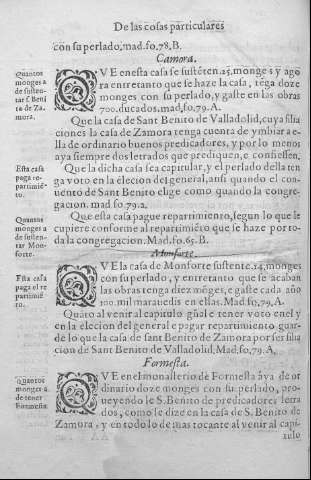 De las cosas particulares
con su perlado, mad. fo. 78. B.
Camora.
Quantos
monges a
de susten-
tar s. Beni
to de Za-
mora.
QVE en esta casa se sustētē .25. monges y ago
ra entretanto que se haze la casa, tēga doze
monges con su perlado, y gaste en las obras
700. ducados. mad. fo. 79. A.
Que la casa de Sant Benito de Valladolid, cuya filia
ciones la casa de Zamora tenga cuenta de ymbiar a e-
lla de ordinario buenos predicadores, y por lo menos
aya siempre dos letrados que prediquen, e confiessen.
Esta casa
paga re-
partimiē-
to.
Que la dicha casa sea capitular, y el perlado della ten
ga voto en la elecion del general, ansi quando el con-
uento de Sant Benito elige como quando la congre-
gacion. mad fo. 79. 2.
Quantos
monges a
de susten-
tar Mon-
forte.
Que esta casa pague repartimiento, segun lo que le
cupiere conforme al repartimiēto que se haze por to-
da la congregacion. Mad. fo. 65. B.
Monforte.
Esta casa
paga el re
partimiē-
to.
QVE la casa de Monforte sustente .24. monges
con su perlado, y entretanto que se acaban
las obras tenga diez mōges, e gaste cada año
100. mil marauedis en ellas. Mad, fo, 79, A.
Quāto al venir al capitulo gñal e tener voto enel y
en la elecion del general e pagar repartimiento guar-
de lo que la casa de sant Benito de Zamora por ser filia
cion de Sant Benito de Valladolid, Mad, fo, 79, A,
Formesta.
Quantos
monges a
de tener
Formesta
QVE en el monasterio de Formesta aya de or
dinario doze monges con su perlado, pro-
ueyendo le S. Benito de predicadores letra
dos, como se dize en la casa de S. Benito de
Zamora, y en todo lo demas tocante al venir al capi-
tulo